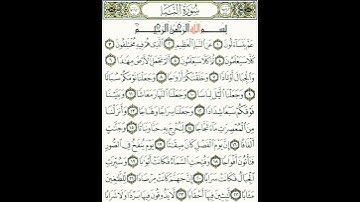 سُورَةُ النَّبَإِ
بِسْمِ اللَّهِ الرَّحْمَٰنِ الرَّحِيمِ
عَمَّ يَتَسَاءَلُونَ ١ عَنِ النَّبَإِ الْعَظِيمِ ٢ الَّذِي هُمْ فِيهِ مُخْتَلِفُونَ ٣
كَلَّا سَيَعْلَمُونَ ٤ ثُمَّ كَلَّا سَيَعْلَمُونَ ٥ أَلَمْ نَجْعَلِ الْأَرْضَ مِهَادًا ٦
وَالْجِبَالَ أَوْتَادًا ٧ وَخَلَقْنَاكُمْ أَزْوَاجًا ٨ وَجَعَلْنَا نَوْمَكُمْ سُبَاتًا
٩ وَجَعَلْنَا اللَّيْلَ لِبَاسًا ١٠ وَجَعَلْنَا النَّهَارَ مَعَاشًا ١١ وَبَنَيْنَا
فَوْقَكُمْ سَبْعًا شِدَادًا ١٢ وَجَعَلْنَا سِرَاجًا وَهَّاجًا ١٣ وَأَنزَلْنَا
مِنَ الْمُعْصِرَاتِ مَاءً ثَجَّاجًا ١٤ لِّنُخْرِجَ بِهِ حَبًّا وَنَبَاتًا ١٥ وَجَنَّاتٍ
أَلْفَافًا ١٦ إِنَّ يَوْمَ الْفَصْلِ كَانَ مِيقَاتًا ١٧ يَوْمَ يُنفَخُ فِي الصُّورِ
فَتَأْتُونَ أَفْوَاجًا ١٨ وَفُتِحَتِ السَّمَاءُ فَكَانَتْ أَبْوَابًا ١٩ وَسُيِّرَتِ
الْجِبَالُ فَكَانَتْ سَرَابًا ٢٠ إِنَّ جَهَنَّمَ كَانَتْ مِرْصَادًا ٢١ لِّلطَّاغِينَ
مَآبًا ٢٢ لَّابِثِينَ فِيهَا أَحْقَابًا ٢٣ لَّا يَذُوقُونَ فِيهَا بَرْدًا وَلَا شَرَابًا